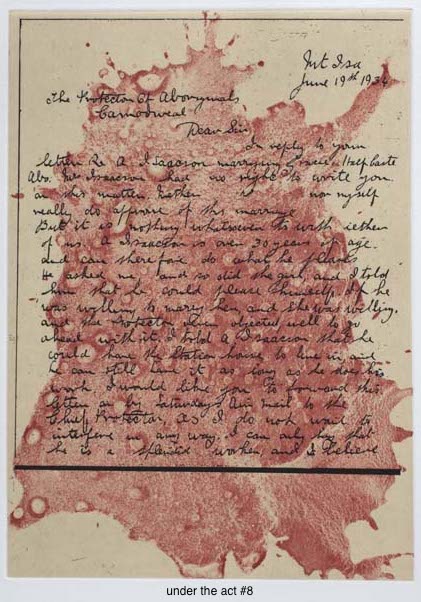 Mt Isa
June 19th 1934
The Protector Of Aboryinals
Camooweal
Dear Sir
In reply to your
letter Re A Isaacson marrying Half Caste
Abo. Mr Isaacson had no right to write you
on this matter. Neither nor myself
really do approve of this marriage
But it is nothing whatsoever to with iether
of us. A Isaacson is over 30 years of age.
and can therefore do what he pleases
He asked me, and so did the girl, and I told
him that he could please himself, if he
was willing to marry her, and she was willing.
and the Protector objected well to go
ahead with it. I told A Isaacson that he
could have the Station house to live in and
he can still have it as long as he does his
work I would like you to forward this
letter on by Saturday's Air mail to the
Chief Protector, as I do not want to
interfere in any way. I can only say that
he is a splendid worker, and I believe
under the act #8